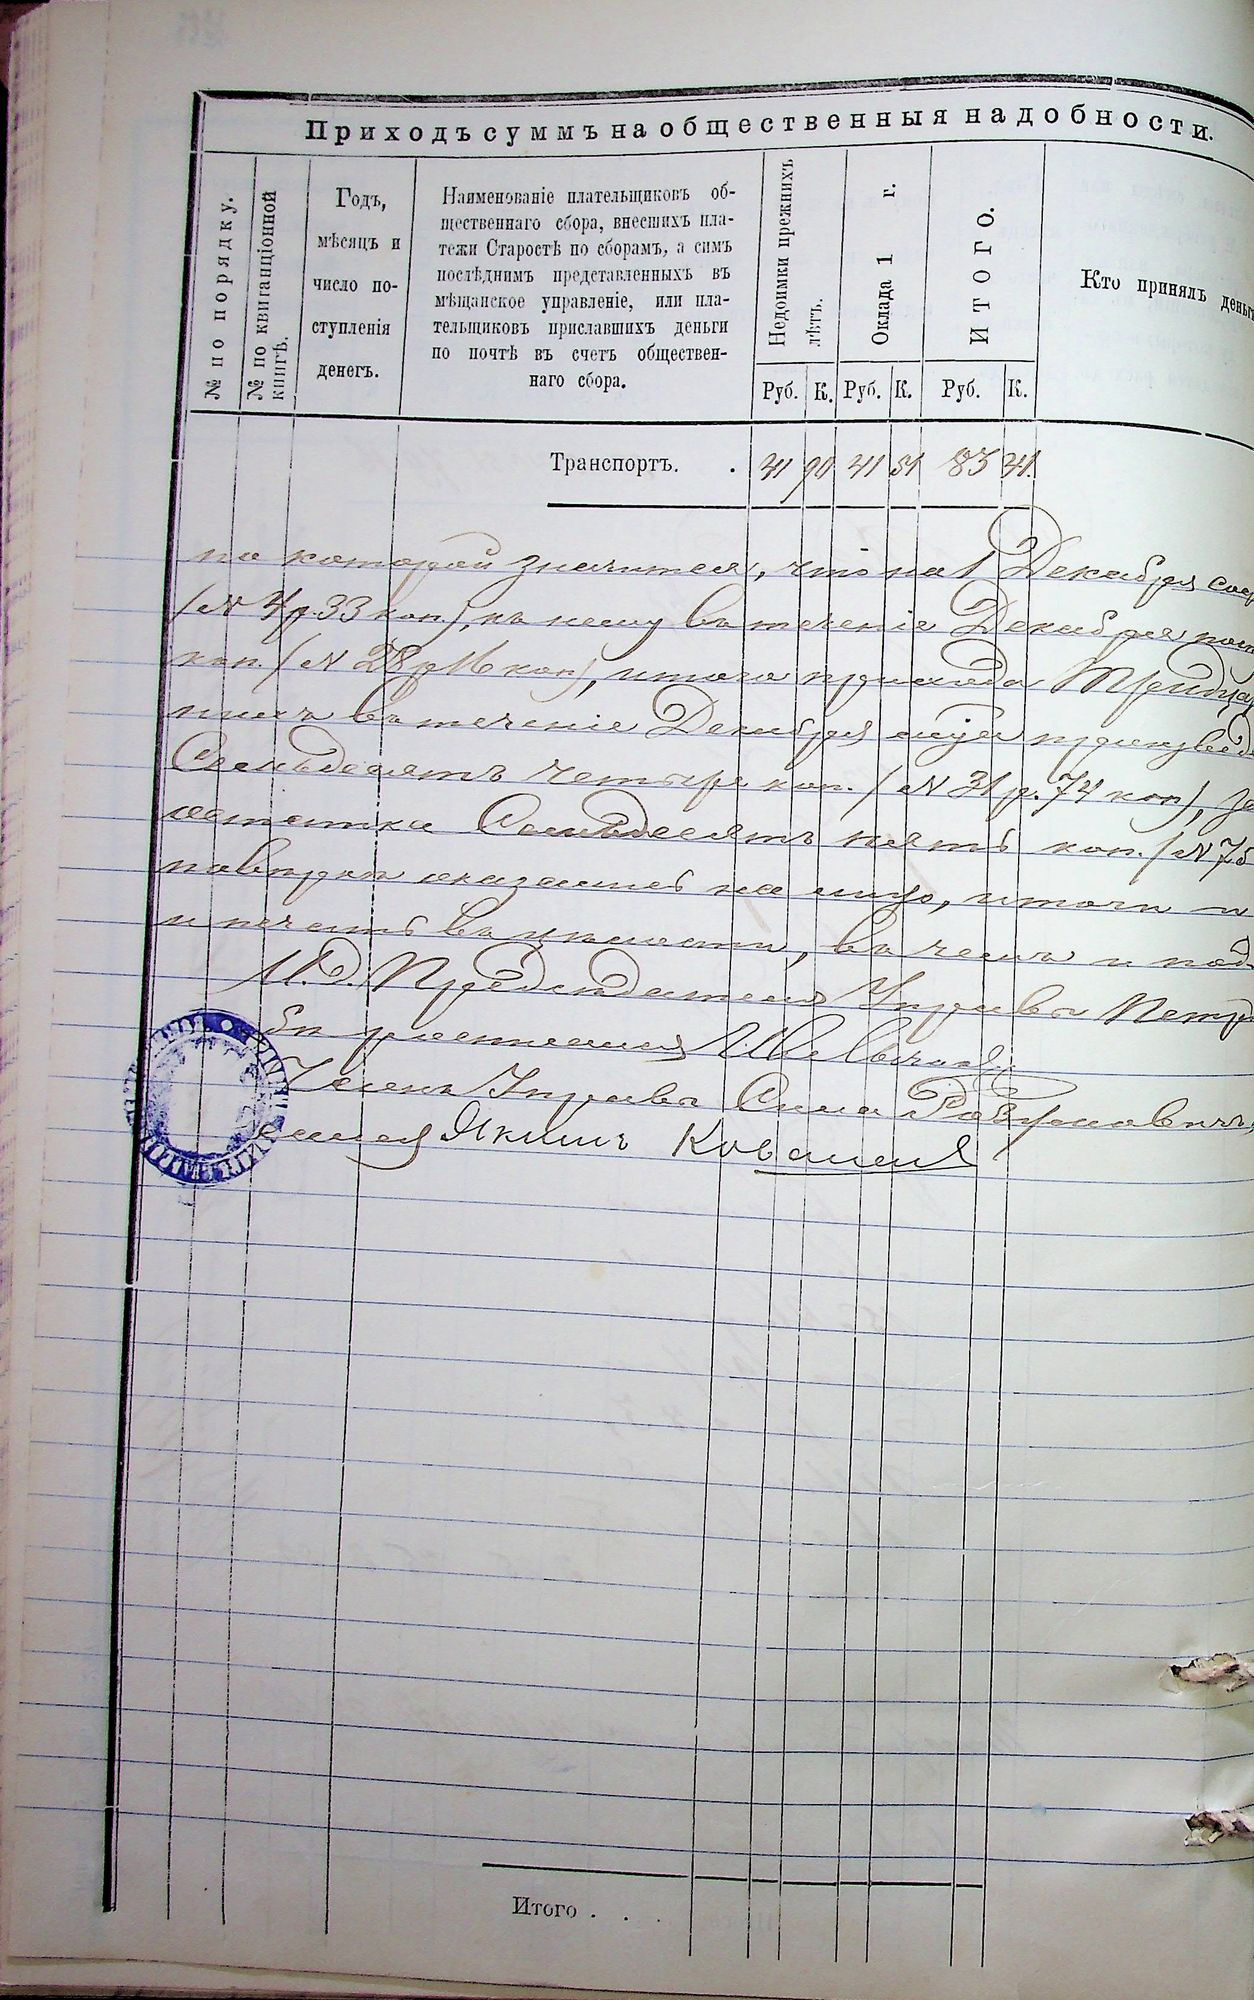 Приходъ суммъ на общественныя надобности.
№ по порядку.
№ по квитанціонной
книгѣ.
Годъ,
мѣсяцъ и
число по-
ступленія
денегъ.
Наименованіе плательщиковъ об-
щественнаго сбора, внесшихъ пла-
тежи Старостѣ по сборамъ, а симъ
послѣднимъ представленныхъ въ
мѣщанское управленіе, или пла-
тельщиковъ приславшихъ деньги
по почтѣ въ счетъ обществен-
наго сбора.
Недоимки прежнихъ
лѣтъ.
Оклада 1 г.
ИТОГО.
Кто принялъ деньги
Руб. К. Руб. К. Руб. К.
Транспортъ. . 41 90 41 51 83 41.
по которой значится, что на 1 Декабря
(№ 4 р. 33 коп), къ нему въ теченіе Декабря
коп. (№ 28 р 16 коп), итого прихода Тридца
нихъ въ теченіе Декабря произвед
Семьдесятъ четыре коп. (№ 31 р. 74 коп), за
остатка Семьдесятъ пять коп. (№ 75
повѣрки оказались на лицо, итоги и
и печать въ цѣлости, въ чемъ и под
И.д. Предсѣдателя Управы Петр
Членъ Управы Сила
Якимъ Ковалев
Итого . . .